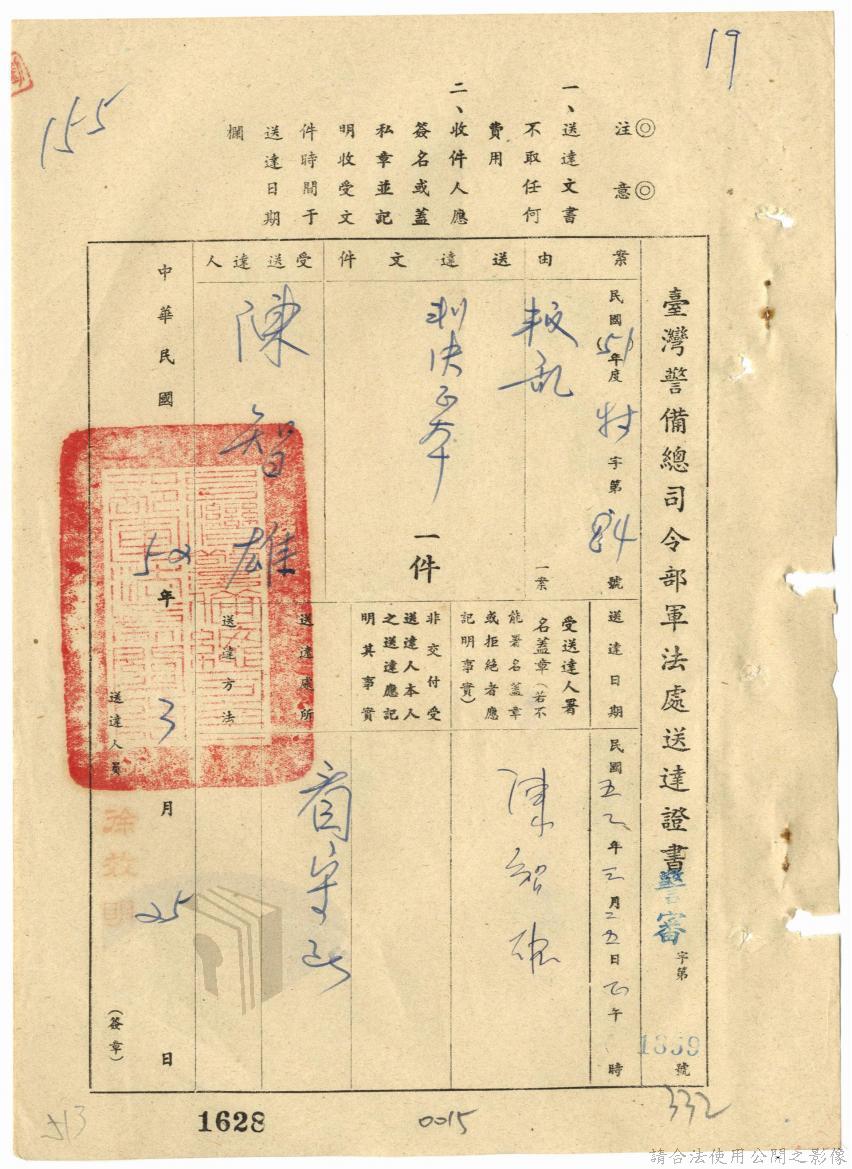 19
155
◎注意◎
一、送達文書
不取任何
費用
二、收件人應
簽名或蓋
私章並記
明收受文
件時間于
送達日期
欄
臺灣警備總司令部軍法處送達證書
警審字第1859號
案由
民國51年度
字第84號
叛亂
一案
送達文件
判決正本
一件
受送達人
陳智雄
送達日期
民國五二年三月二五日
午
時
受送達人署
名蓋章(若不
能署名蓋章
或拒絕者應
記明事實)
陳智雄
非交付受
送達人本人
之送達應記
明其事實
送達處所
看守所
送達方法
中華民國52年3月25日
送達人員
徐效明
(簽章)
332
513
1628
0015
請合法使用公開之影像